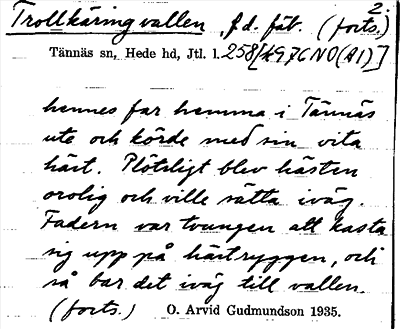 2.
Trollkäringvallen, f.d. fäb. (forts.)
Tännäs sn, Hede hd, Jtl. l. 258[k976NO(A1)]
hennes far hemma i Tännäs
ute och körde med sin vita
häst. Plötsligt blev hästen
orolig och ville sätta iväg.
Fadern var tvungen att kasta
sig upp på hästryggen, och
så bar det iväg till vallen.
(forts.) O. Arvid Gudmundson 1935.